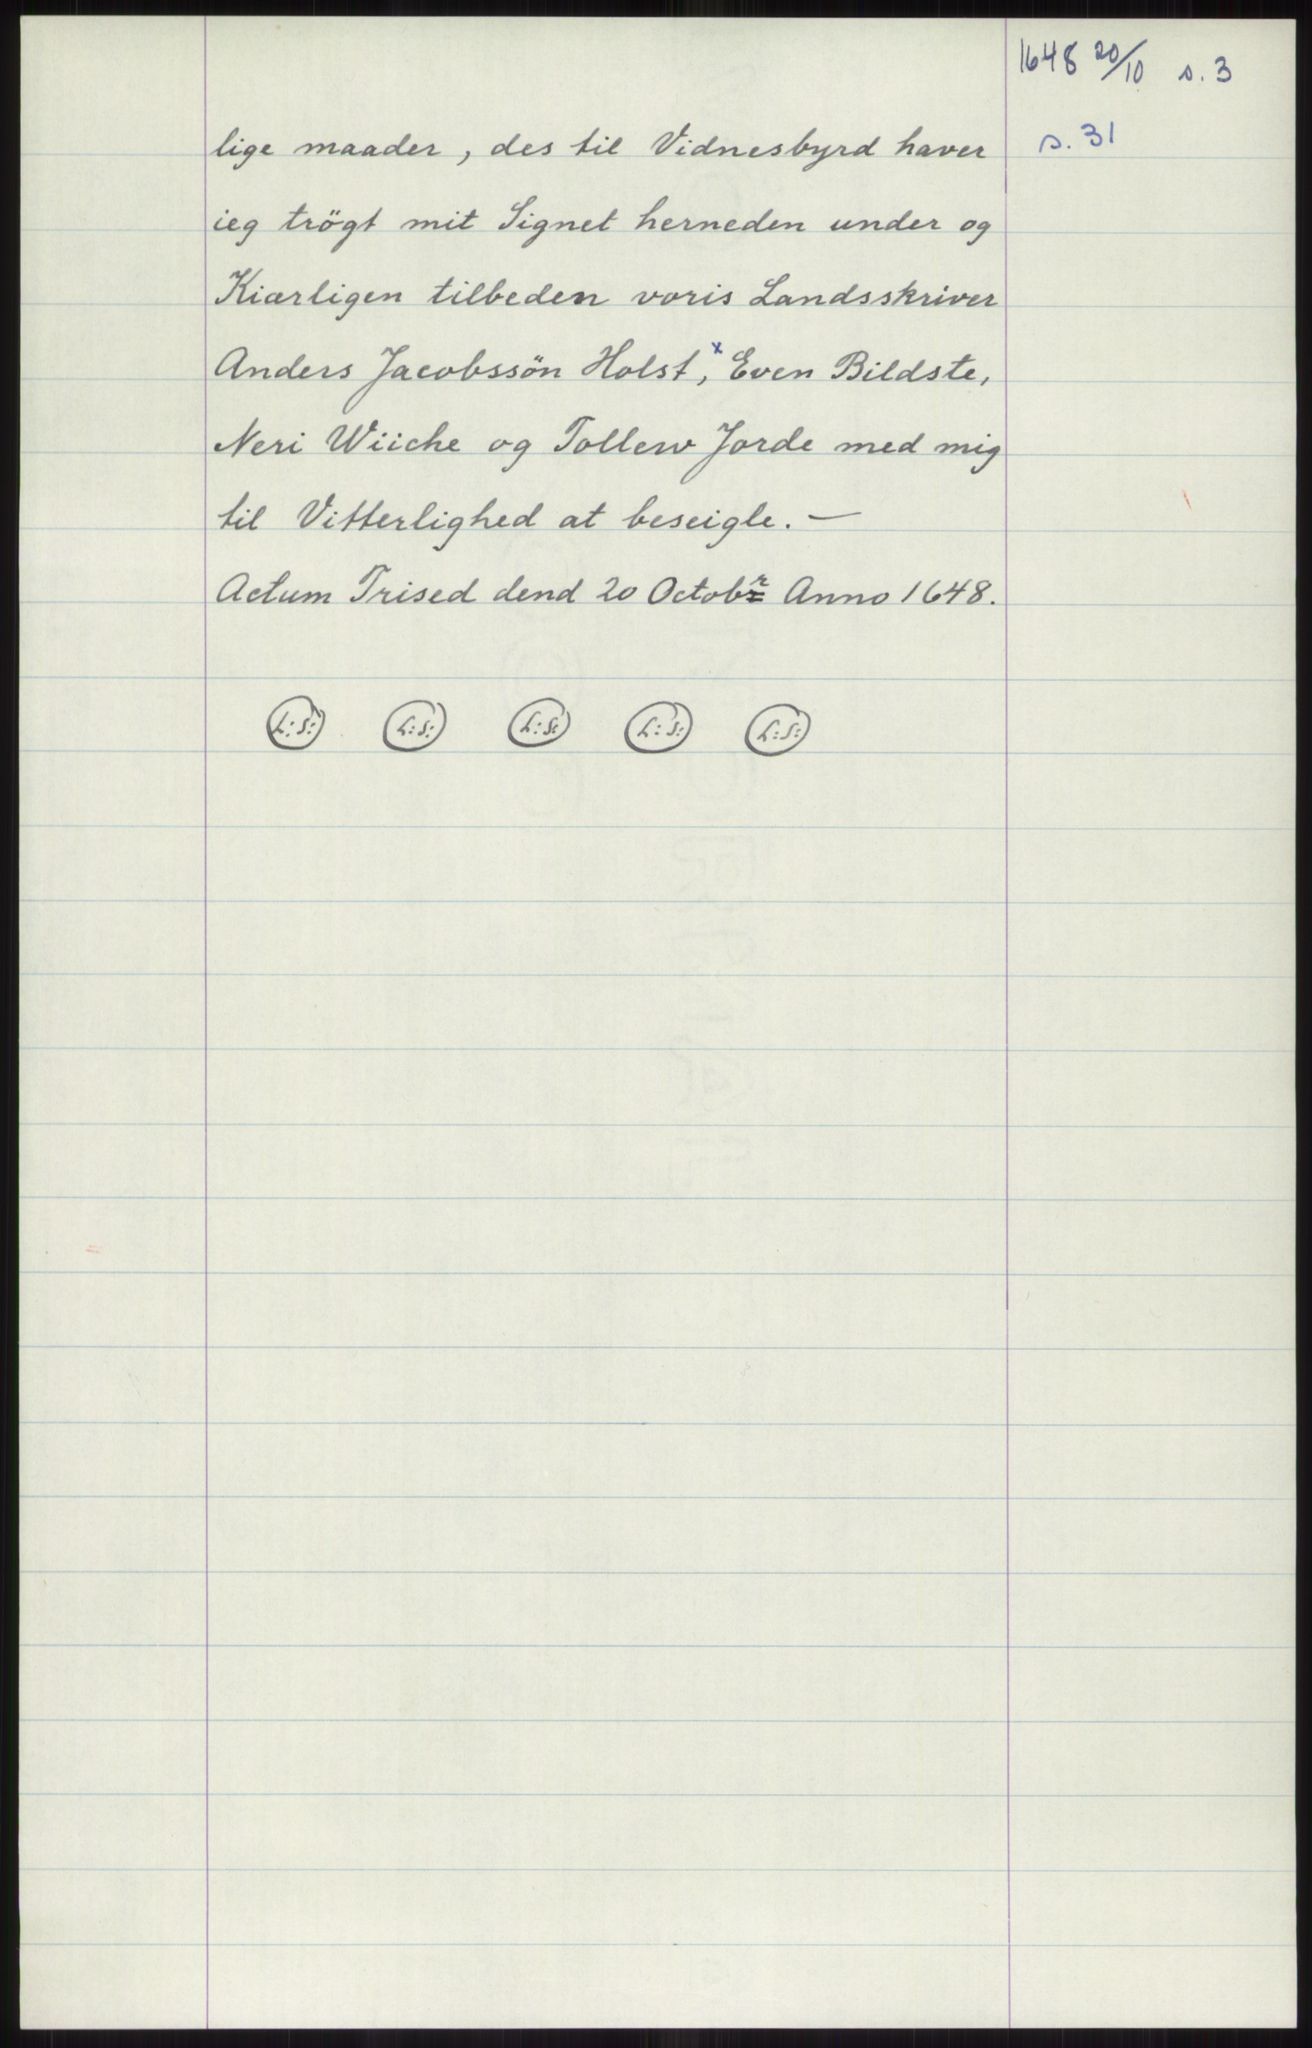 1648 20/10 s. 3
s. 31
lige maader, des til Vidnesbyrd haver
ieg trögt mit Signet herneden under og
Kiærligen tilbeden voris Landsskriver
Anders Jacobssön Holst,x Even Bildste,
Neri Wiiche og Tollew Jorde med mig
til Vitterlighed at beseigle. —
Actum Trised dend 20 Octobr Anno 1648.
L:S: L:S: L:S: L:S: L:S: